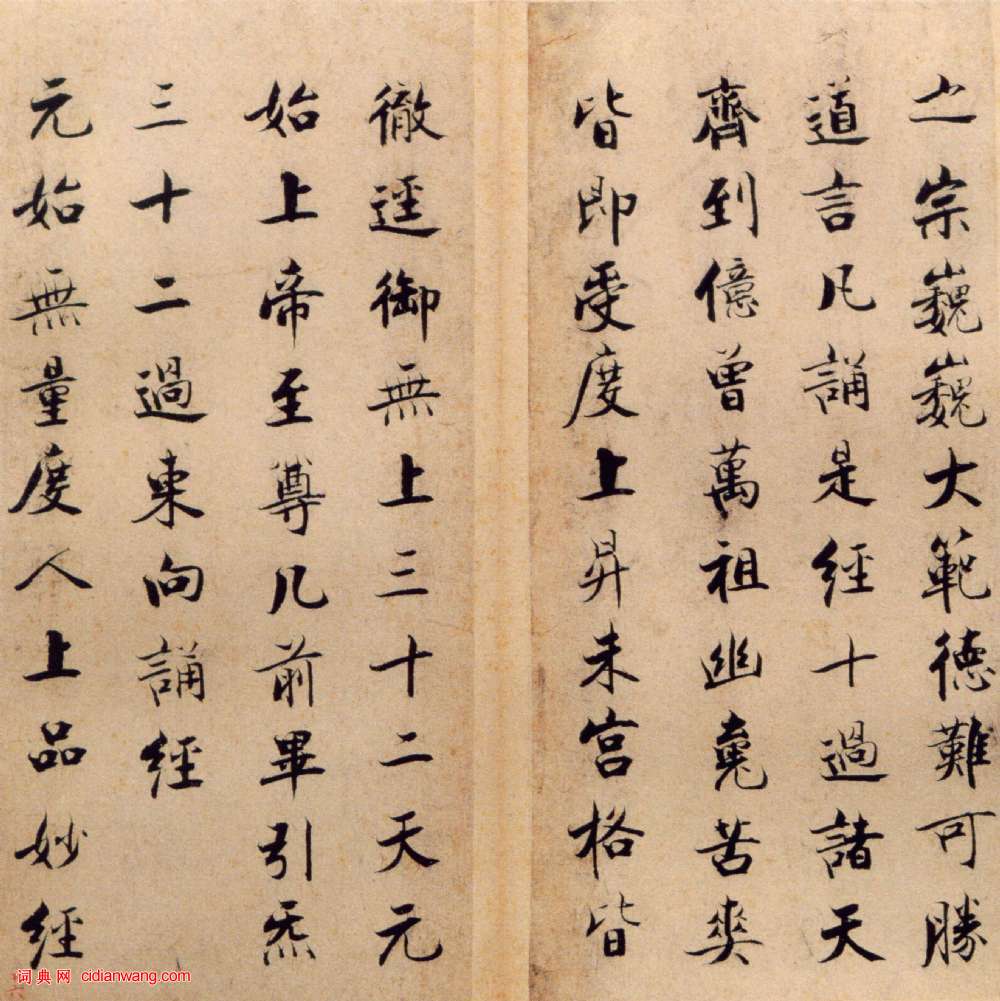 之宗巍巍大範德難可勝
道言凡誦是經十過諸天
齊到億曾萬祖幽䰟苦爽
皆即受度上昇朱宮格皆
徹遥御無上三十二天元
始上帝至尊几前畢引炁
三十二過東向誦經
元始無量度人上品妙經
词典网 cidianwang.com